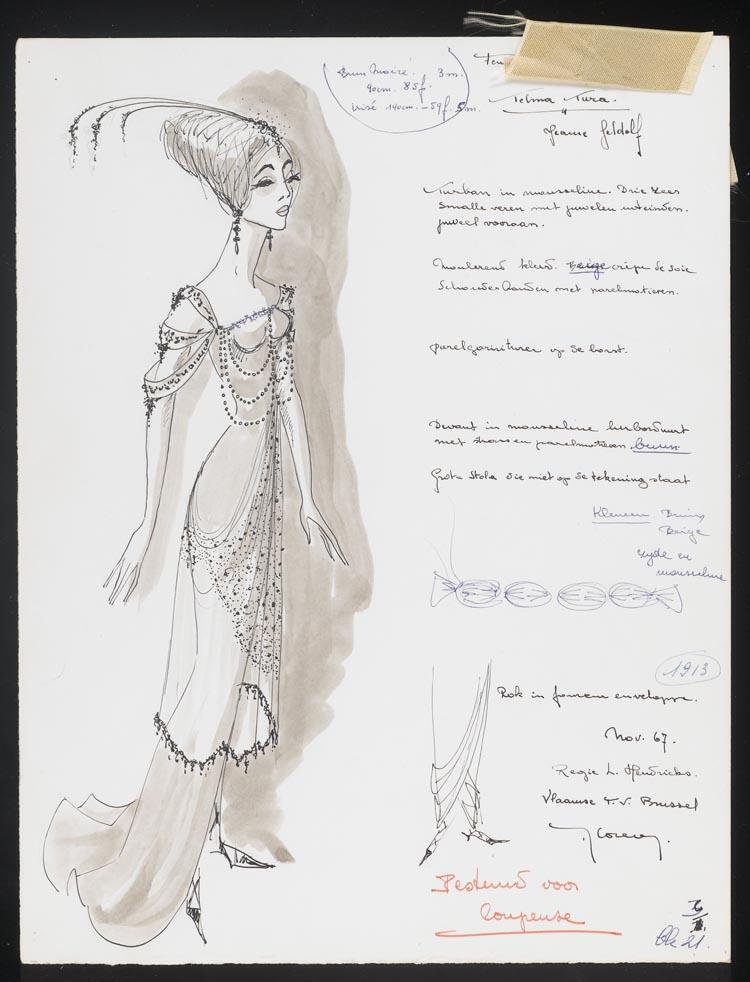 3 m.
90cm. 85f.
irisé 140cm. – 59f. 5m.
Telma Tura.
Jeanne Geldolf
Turban in mousseline. Drie zeer
smalle veren met juwelen uiteinden.
juweel vooraan.
Moulerend kleed. Beige crêpe de soie
Schouderbanden met parelmotieven.
parelgarnituren op de borst.
Devant in mousseline herborduurt
met strass en parelmotieven
Grote stola die niet op de tekening staat
Kleuren
Beige
zijde en
mousseline
1913
Rok in forme enveloppe.
Nov. 67.
Regie L. Hendrickx.
Vlaamse T.V. Brussel
Bestemd voor
Coupeuse
21.